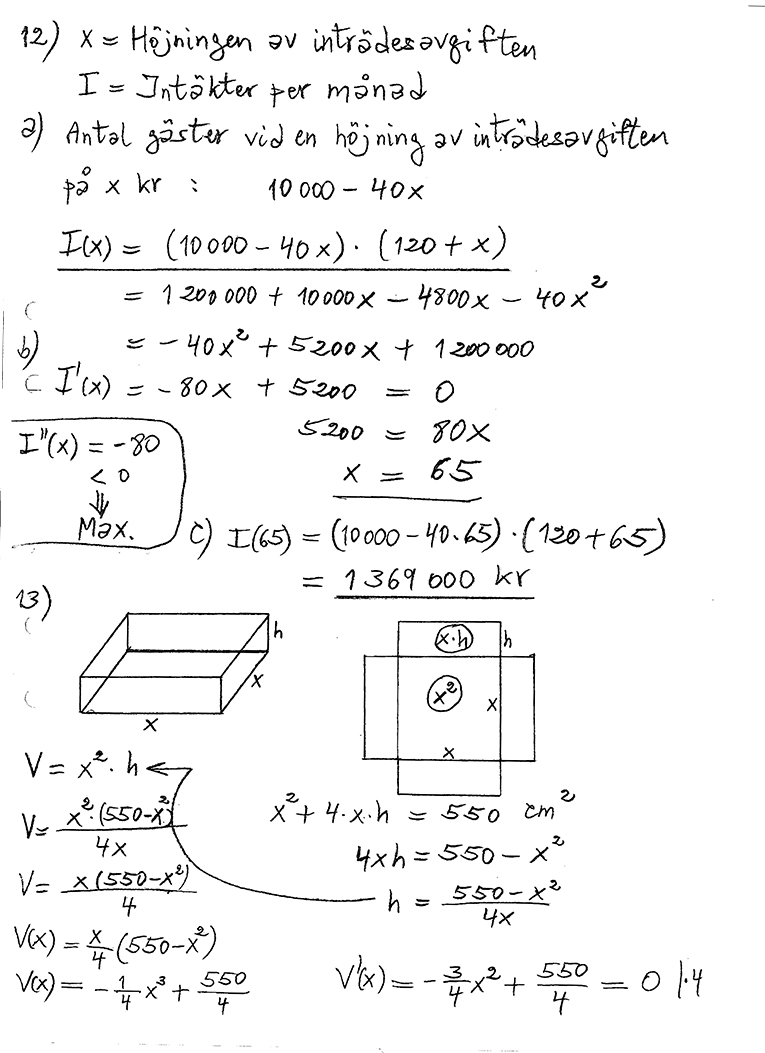 12) x = Höjningen av inträdesavgiften
I = Intäkter per månad
a) Antal gäster vid en höjning av inträdesavgiften
på x kr : 10 000 – 40x
I(x) = (10 000 – 40x) · (120 + x)
= 1 200 000 + 10 000x – 4800x – 40x²
b) = – 40x² + 5200x + 1 200 000
I'(x) = – 80x + 5200 = 0
5200 = 80x
x = 65
I''(x) = – 80
< 0
⇓
Max.
c) I(65) = (10 000 – 40·65) · (120 + 65)
= 1 369 000 kr
13)
h
x
x
x·h
h
x²
x
x
V = x² · h
V = x²·(550–x²)/4x
V = x(550–x²)/4
V(x) = x/4 (550–x²)
V(x) = – 1/4 x³ + 550/4
x² + 4·x·h = 550 cm²
4xh = 550 – x²
h = 550 – x²/4x
V'(x) = – 3/4 x² + 550/4 = 0 |·4